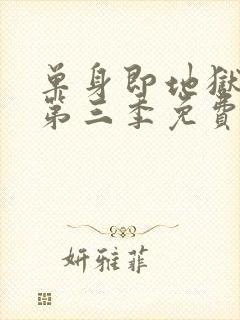 單身即地獄
第三季免費
妍雅菲